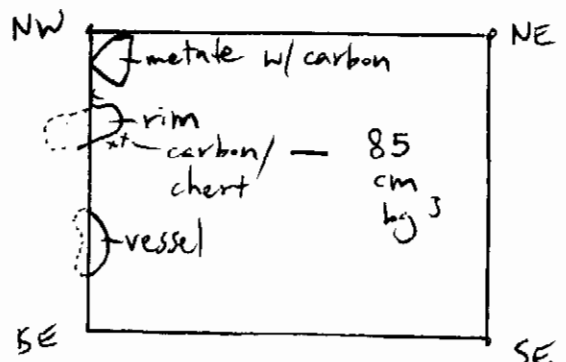 NW NE
metate w/ carbon
rim
carbon/ — 85
chert cm
bg
vessel
SE